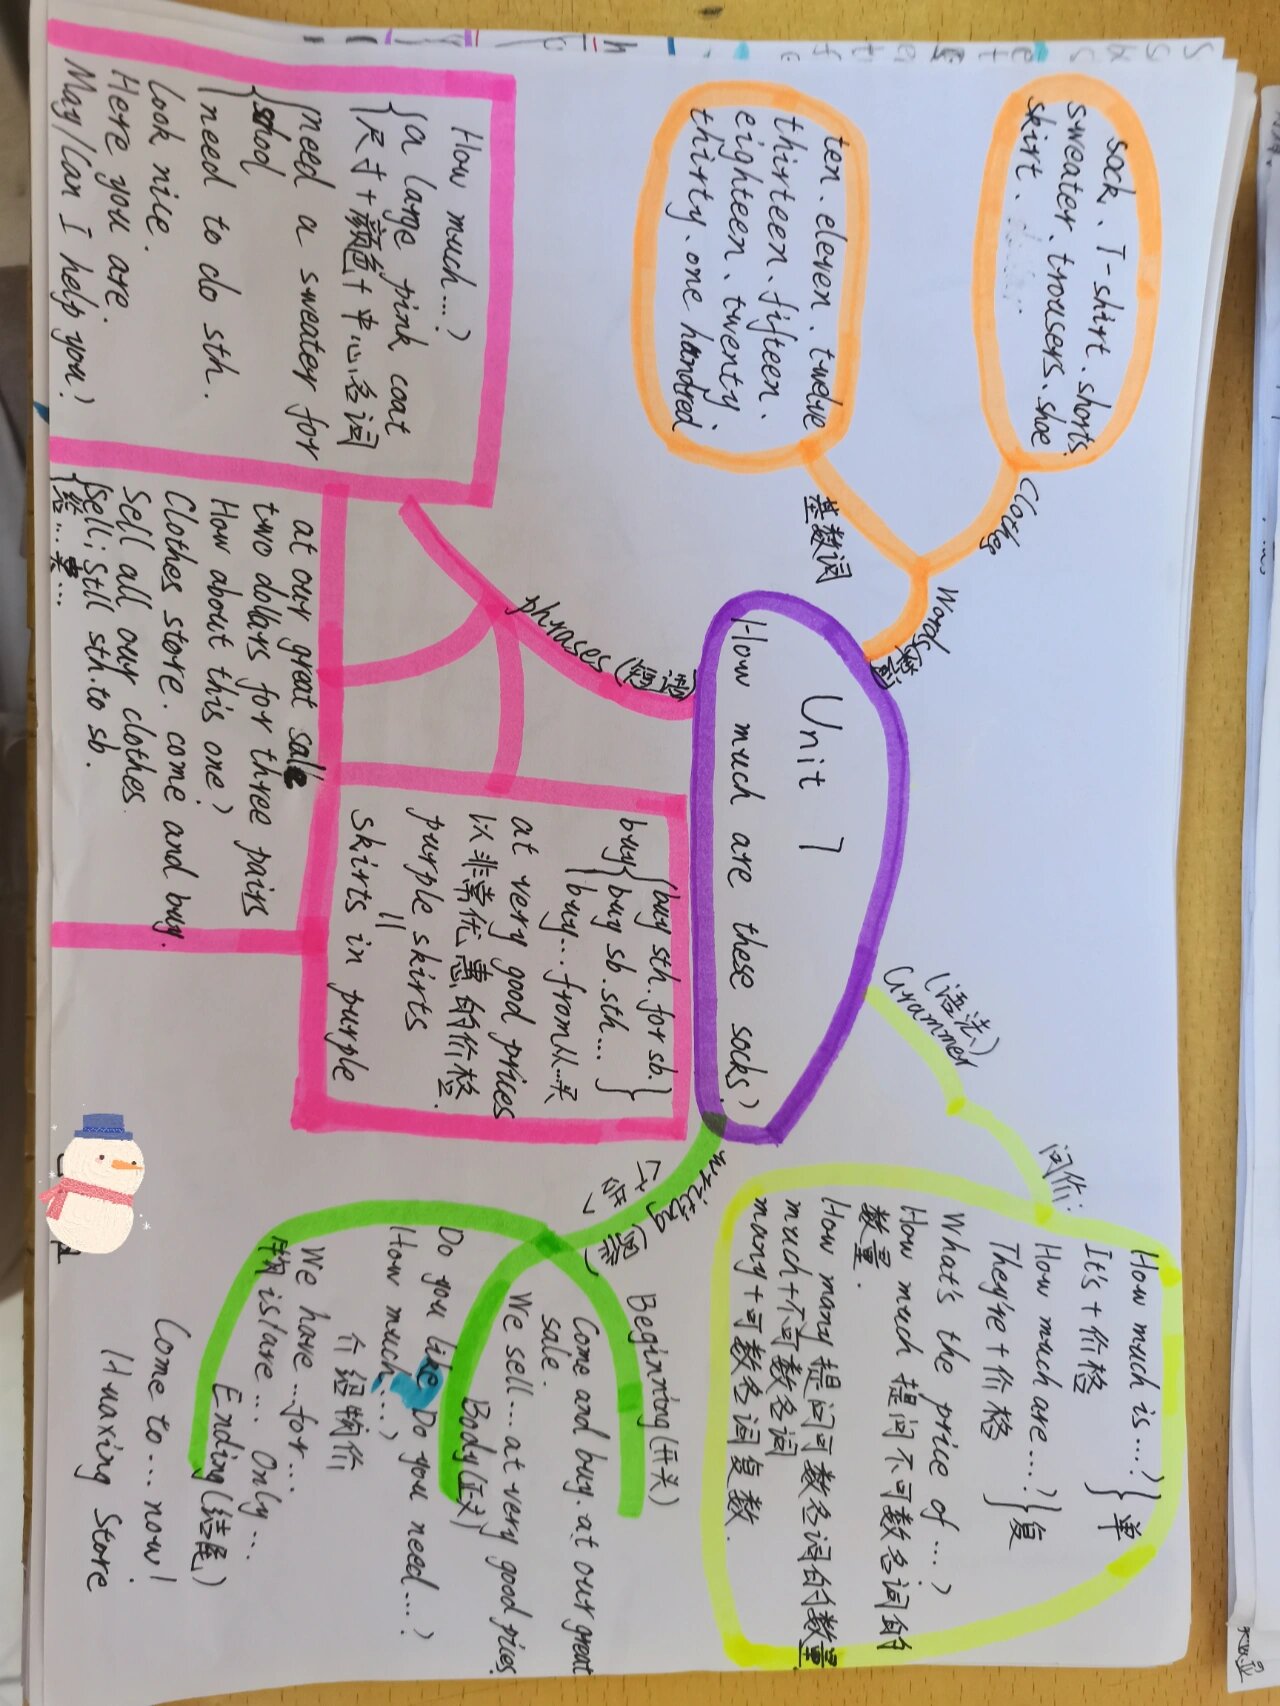 Unit 7
How much are these socks?
Words(单词)
Clothes
sock. T-shirt. shorts.
sweater. trousers. shoe
skirt.
基数词
ten. eleven. twelve
thirteen. fifteen.
eighteen. twenty
thirty. one hundred
Grammer
(语法)
问价:
How much is ...?
It's + 价格
} 单
How much are ...?
They're + 价格
} 复
What's the price of ...?
How much 提问不可数名词的
数量.
How many 提问可数名词的数量.
much + 不可数名词
many + 可数名词复数.
phrases (短语)
How much...?
{a large pink coat
{尺寸+颜色+中心名词
{need a sweater for
shool
{need to do sth.
Look nice.
Here you are.
May/Can I help you?
at our great sale
two dollars for three pairs
How about this one?
Clothes store. come and buy.
Sell all our clothes.
{Sell: Still sth. to sb.
{给...卖...
buy{buy sth. for sb.}
buy sb. sth....}
buy...from从...买
at very good prices
以非常优惠的价格.
purple skirts
=
skirts in purple
writing (写作)
(广告)
Beginning(开头)
Come and buy. at our great
sale.
We sell.... at very good pries.
Body(正文)
Do you like Do you need....?
How much....?
介绍物价
We have ... for...
物 is/are .... Only ....
Ending(结尾)
Come to .... now!
Huaxing Store